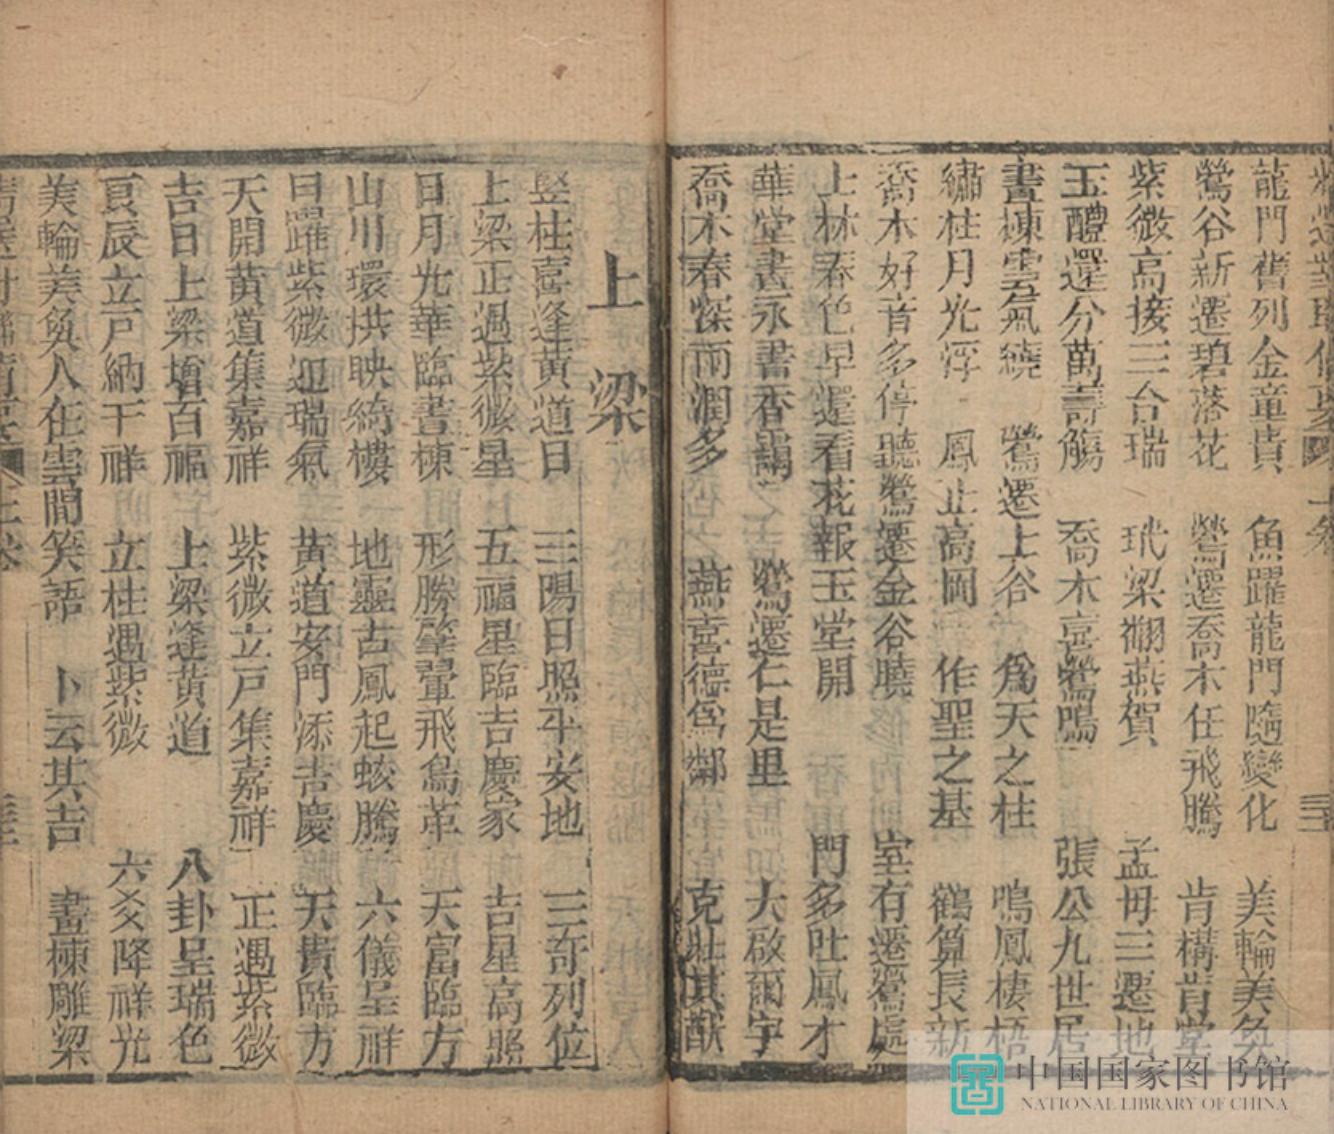 龍門舊列金童貴 魚躍龍門隨變化 美輪美奐
鶯谷新遷碧落花 鶯遷喬木任飛騰 肯構肯堂
紫微高接三台瑞 玳梁翩燕賀 孟母三遷地
玉醴還分萬壽觴 喬木喜鶯鳴 張公九世居
畫棟雲氣繞 鶯遷上谷 為天之柱 鳴鳳棲梧
繡柱月光浮 鳳止高岡 作聖之基 鶴算長新
喬木好音多停聽鶯遷金谷曉 室有遷鶯處
上林春色早還看花報玉堂開 門多吐鳳才
華堂晝永書香藹 鶯遷仁是里 大啟爾宇
喬木春深雨潤多 燕喜德為鄰 克壯其猷
上梁
竪柱喜逢黃道日 三陽日照平安地 三奇列位
上梁正遇紫微星 五福星臨吉慶家 吉星高照
日月光華臨晝棟 形勝肇翬飛鳥革 天富臨方
山川環拱映綺樓 地靈占鳳起蛟騰 六儀呈祥
日躍紫微迎瑞氣 黃道安門添吉慶 天貴臨方
天開黃道集嘉祥 紫微立戸集嘉祥 正遇紫微
吉日上梁增百福 上梁逢黃道 八卦呈瑞色
良辰立戸納千祥 立柱遇紫微 六爻降祥光
美輪美奐人在雲間笑語 卜云其吉 畫棟雕梁
中国国家图书馆
NATIONAL LIBRARY OF CHINA